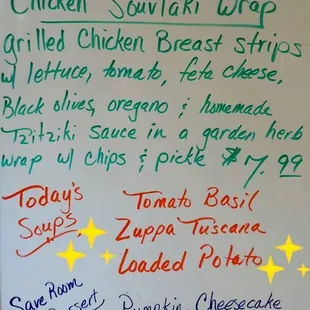 Chicken Souvlaki Wrap
grilled Chicken Breast strips
w/ lettuce, tomato, feta cheese,
Black olives, oregano & homemade
Tzitziki Sauce in a garden herb
wrap w/ chips & pickle $7.99
Today's
Soups
Tomato Basil
Zuppa Tuscana
Loaded Potato
Save Room
Pumpkin Cheesecake